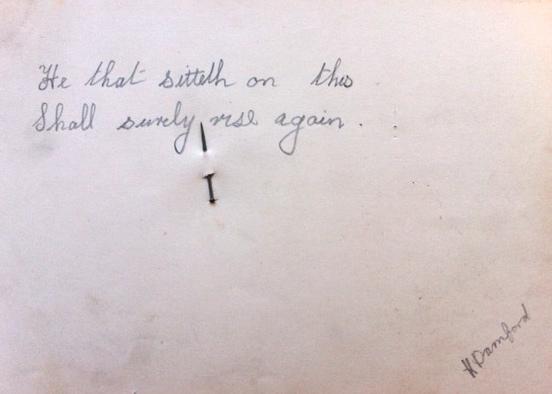 He that sitteth on this
Shall surely rise again.
H Damford